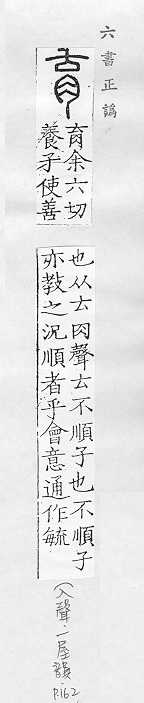 六書正譌
育余六切
養子使善
也从𠫓⺼聲𠫓不順子也不順子
亦敎之況順者乎會意通作毓
(入聲.一屋韻.P.162